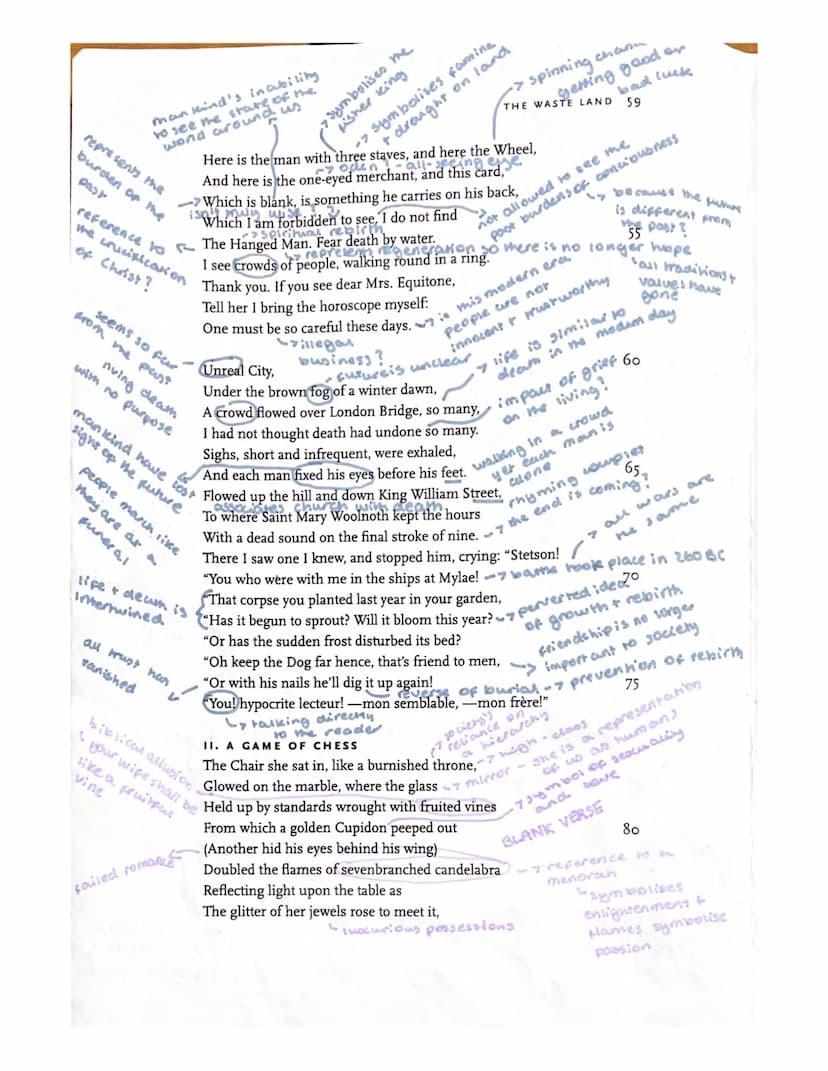 mankind's inability
to see the state of the
world around us
symbolises the
fisher king
symbolises famine
+ drought on land
spinning
getting good or
bad luck
THE WASTE LAND 59
represents the
burden of the
past
Here is the man with three staves, and here the Wheel,
oden? - all-seeing eye
And here is the one-eyed merchant, and this card,
Which is blank, is something he carries on his back,
isn't truly wise??
Which I am forbidden to see, I do not find
not allowed to see the
past burdens of conciousness
because the future
is different from
the past?
spiritual rebirth
reference to
the crucifixation
of Christ?
The Hanged Man. Fear death by water. 55
represents regeneration so there is no longer hope
I see crowds of people, walking round in a ring.
all traditions +
values have
gone
Thank you. If you see dear Mrs. Equitone,
Tell her I bring the horoscope myself:
One must be so careful these days.
is this modern era
people are not
innocent + trustworthy
illegal
business?
seems so far
from the past
Unreal City, 60
future is unclear
life is similar to
death in the modern day
living death
with no purpose
Under the brown fog of a winter dawn,
A crowd flowed over London Bridge, so many,
impact of grief
on the living?
I had not thought death had undone so many.
mankind have lost
sight of the future
Sighs, short and infrequent, were exhaled,
And each man fixed his eyes before his feet. 65
walking in a crowd
yet each man is
alone
people march like
they are at a
funeral
Flowed up the hill and down King William Street,
rhyming couplet
associates church with death
To where Saint Mary Woolnoth kept the hours
With a dead sound on the final stroke of nine.
the end is coming?
There I saw one I knew, and stopped him, crying: “Stetson!
all wars are
the same
“You who were with me in the ships at Mylae! 70
battle took place in 260 BC
life + death is
intertwined
“That corpse you planted last year in your garden,
“Has it begun to sprout? Will it bloom this year?
perverted idea
of growth + rebirth
“Or has the sudden frost disturbed its bed?
“Oh keep the Dog far hence, that's friend to men,
friendship is no longer
important to society
all trust has
vanished
“Or with his nails he'll dig it up again! 75
reverse of burial → prevention of rebirth
“You! hypocrite lecteur! —mon semblable, —mon frère!”
talking directly
to the reader
II. A GAME OF CHESS
biblical allusion
'your wife shall be
like a fruitful
vine
society's
reliance on
a hierarchy
The Chair she sat in, like a burnished throne,
high-class
Glowed on the marble, where the glass
mirror - she is a representation
of us as humans
Held up by standards wrought with fruited vines
symbol of sexuality
and love
From which a golden Cupidon peeped out 80
BLANK VERSE
(Another hid his eyes behind his wing)
failed romance
Doubled the flames of sevenbranched candelabra
reference to a
menorah
symbolises
enlightenment +
flames symbolise
passion
Reflecting light upon the table as
The glitter of her jewels rose to meet it,
luxurious possessions